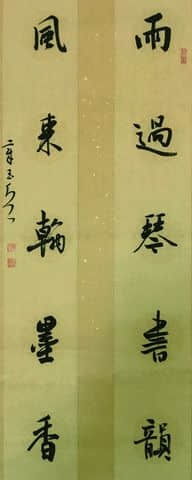 雨過琴書韻
風來翰墨香